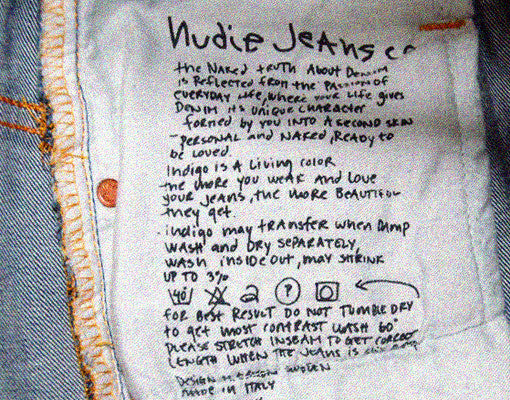 nudie Jeans co
the NAKED tRUTH About DENIM
is REFLECTED fROM the PASSION of
EVERYDAY LIFE, WHERE OUR LIFE gives
DENIM its UNIQUE CHARACTER
formed by YOU INTO A SECOND SKIN
- PERSONAL and NAKED, READY to
be LOVED
INDIGO IS A LIVING COLOR
the MORE YOU WEAR AND LOVE
YOUR JEANS, the MORE BEAUTIFUL
they get
- indigo may tRANSFER WHEN DAMP
WASH and DRY SEPARATELY,
WASH INSIDE OUT, MAY SHRINK
UP TO 3%
40 P
FOR BEST RESULT DO NOT TUMBLE DRY
to get MOST CONTRAST WASH 60°
PLEASE STRETCH INSEAM TO GET CORRECT
LENGTH WHEN THE JEANS IS
DESIGN SWEDEN
MADE IN ITALY